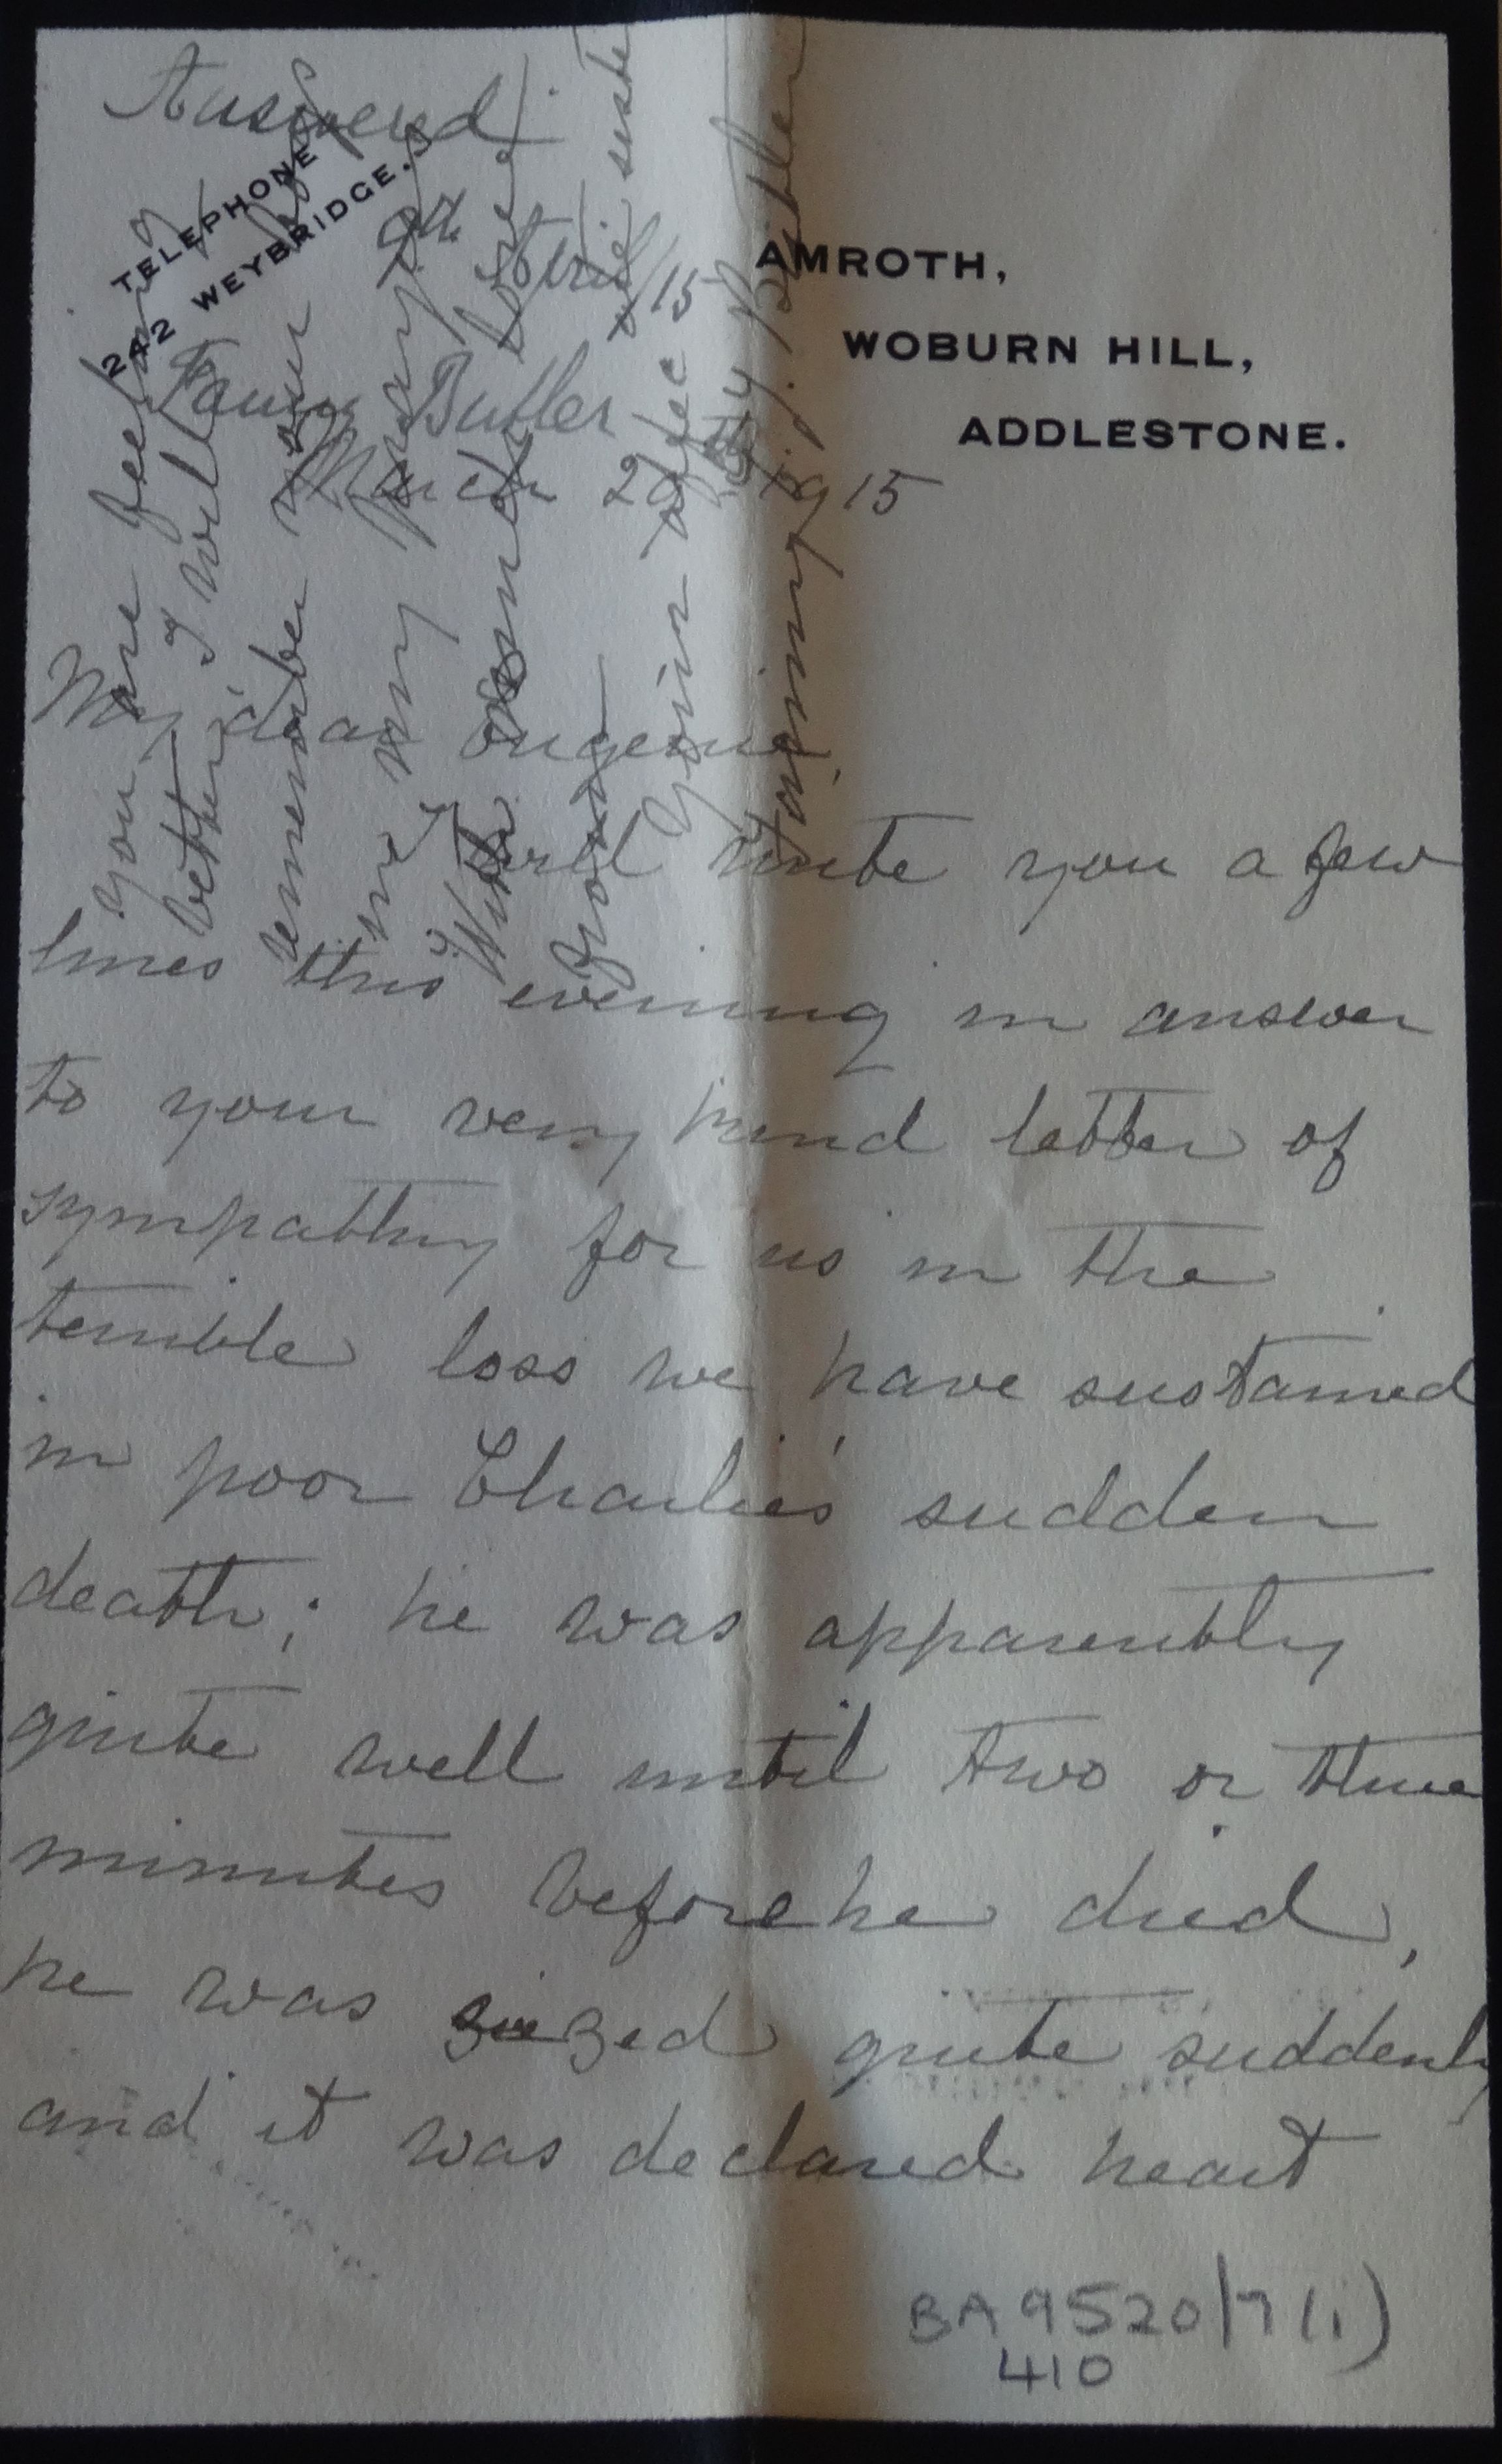 Answered
TELEPHONE
242 WEYBRIDGE.
9th April/15
Fanny Butler
AMROTH,
WOBURN HILL,
ADDLESTONE.
March 29th 1915
My dear Eugenie
I will write you a few
lines this evening in answer
to your very kind letter of
sympathy for us in the
terrible loss we have sustained
in poor Charlie's sudden
death; he was apparently
quite well until two or three
minutes before he died,
he was siezed quite suddenly
and it was declared heart
you are feeling
better I will
remember your
me my
With love
from
Your affec sister
Fanny Butler
BA 9520/7(i)
410